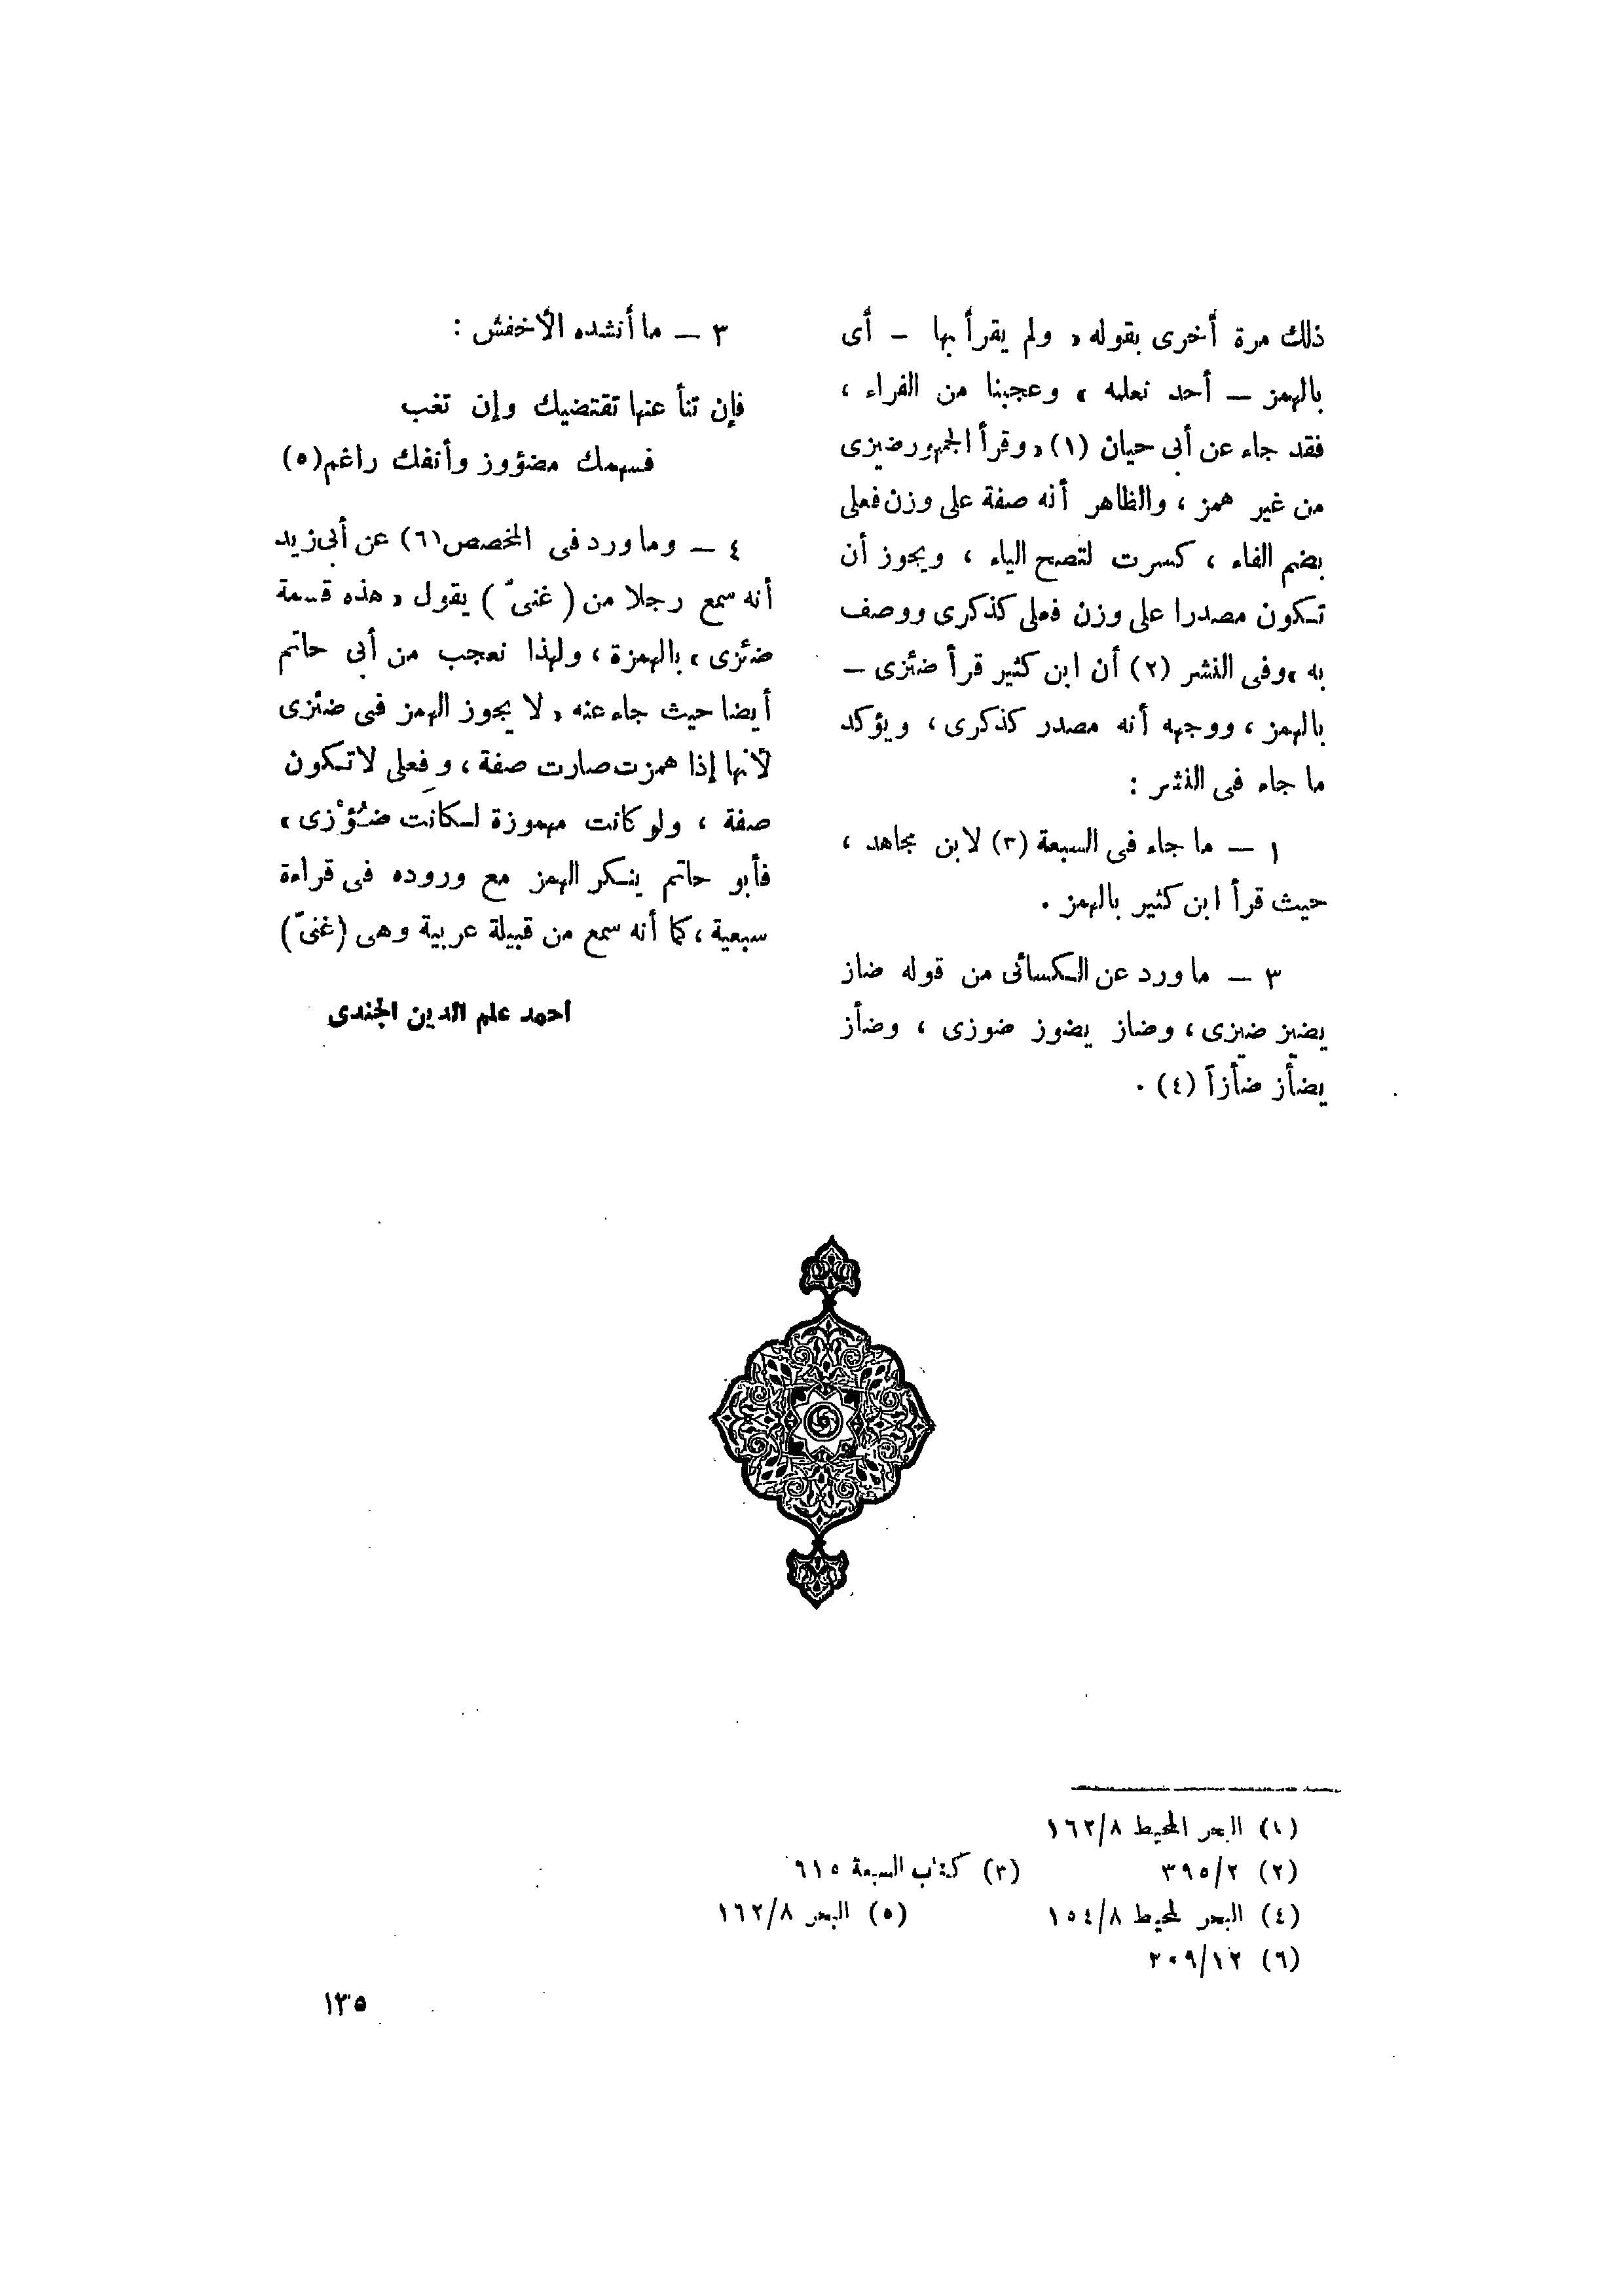 ذلك مرة أخرى بقوله « ولم يقرأ بها – أى
بالهمز – أحد نعلمه » وعجبنا من الفراء ،
فقد جاء عن أبى حيان (١) « وقرأ الجمهور ضيزى
من غير همز ، والظاهر أنه صفة على وزن فعلى
بضم الفاء ، كسرت لتصح الياء ، ويجوز أن
تكون مصدرا على وزن فعلى كذكرى ووصف
به » وفى النشر (٢) أن ابن كثير قرأ ضئزى –
بالهمز ، ووجهه أنه مصدر كذكرى ، ويؤكد
ما جاء فى النشر :
١ – ما جاء فى السبعة (٣) لابن مجاهد ،
حيث قرأ ابن كثير بالهمز .
٣ – ما ورد عن الكسائى من قوله ضاز
يضيز ضيزى ، وضاز يضوز ضوزى ، وضأز
يضأز ضأزاً (٤) .
٣ – ما أنشده الأخفش :
فإن تنأ عنها تقتضيك وإن تغب
فسهمك مضؤوز وأنفك راغم (٥)
٤ – وما ورد فى المخصص (٦) عن أبى زيد
أنه سمع رجلا من ( غنىّ ) يقول « هذه قسمة
ضئزى » بالهمزة ، ولهذا نعجب من أبى حاتم
أيضا حيث جاء عنه « لا يجوز الهمز فى ضئزى
لأنها إذا همزت صارت صفة ، وفِعلى لا تكون
صفة ، ولو كانت مهموزة لكانت ضُؤْزى »
فأبو حاتم ينكر الهمز مع وروده فى قراءة
سبعية ، كما أنه سمع من قبيلة عربية وهى (غنىّ)
احمد علم الدين الجندى
(١) البحر المحيط ١٦٢/٨
(٢) ٣٩٥/٢ (٣) كتاب السبعة ٦١٥
(٤) البحر لمحيط ١٥٤/٨ (٥) البحر ١٦٢/٨
(٦) ٢٠٩/١٢
١٣٥